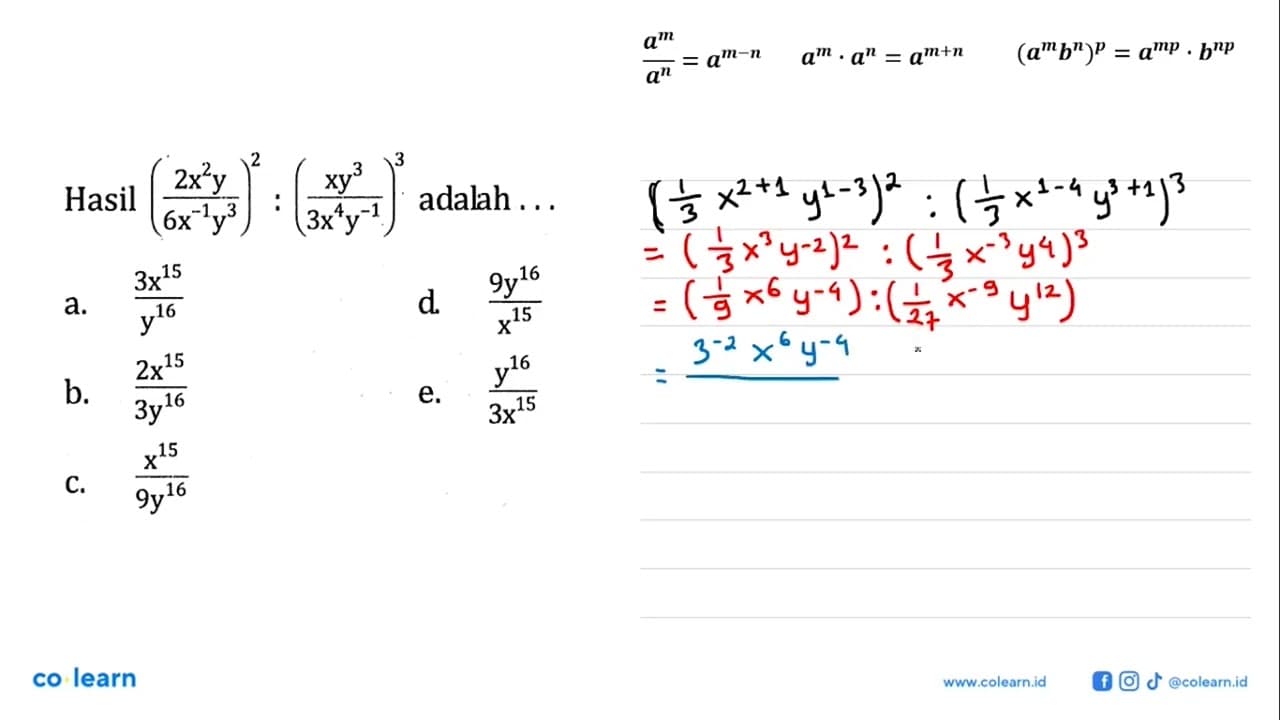 a^m/a^n = a^(m−n)   a^m · a^n = a^(m+n)   (a^m b^n)^p = a^(mp) · b^(np)
Hasil (2x²y / 6x⁻¹y³)² : (xy³ / 3x⁴y⁻¹)³ adalah . . .
a. 3x¹⁵/y¹⁶
b. 2x¹⁵/3y¹⁶
c. x¹⁵/9y¹⁶
d. 9y¹⁶/x¹⁵
e. y¹⁶/3x¹⁵
(1/3 x^(2+1) y^(1−3))² : (1/3 x^(1−4) y^(3+1))³
= (1/3 x³ y−2)² : (1/3 x⁻³ y⁴)³
= (1/9 x⁶ y⁻⁴) : (1/27 x⁻⁹ y¹²)
= 3⁻² x⁶ y⁻⁴
co learn
www.colearn.id
@colearn.id